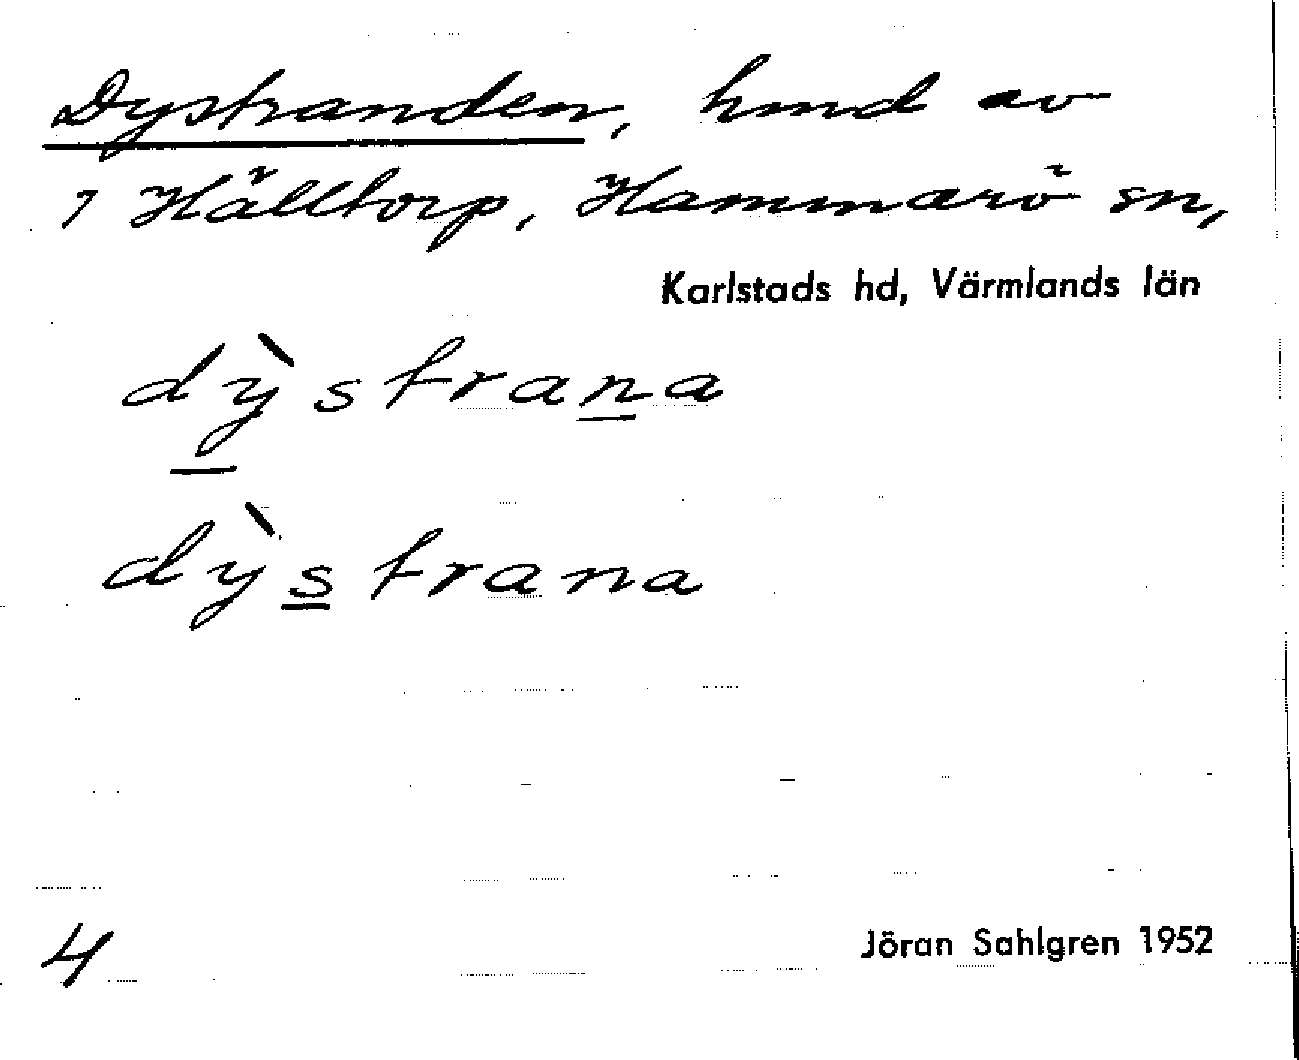 Dystranden, hmd av
7 Hälltorp, Hammarö sn,
Karlstads hd, Värmlands län
dỳstrana
dỳstrana
4
Jöran Sahlgren 1952